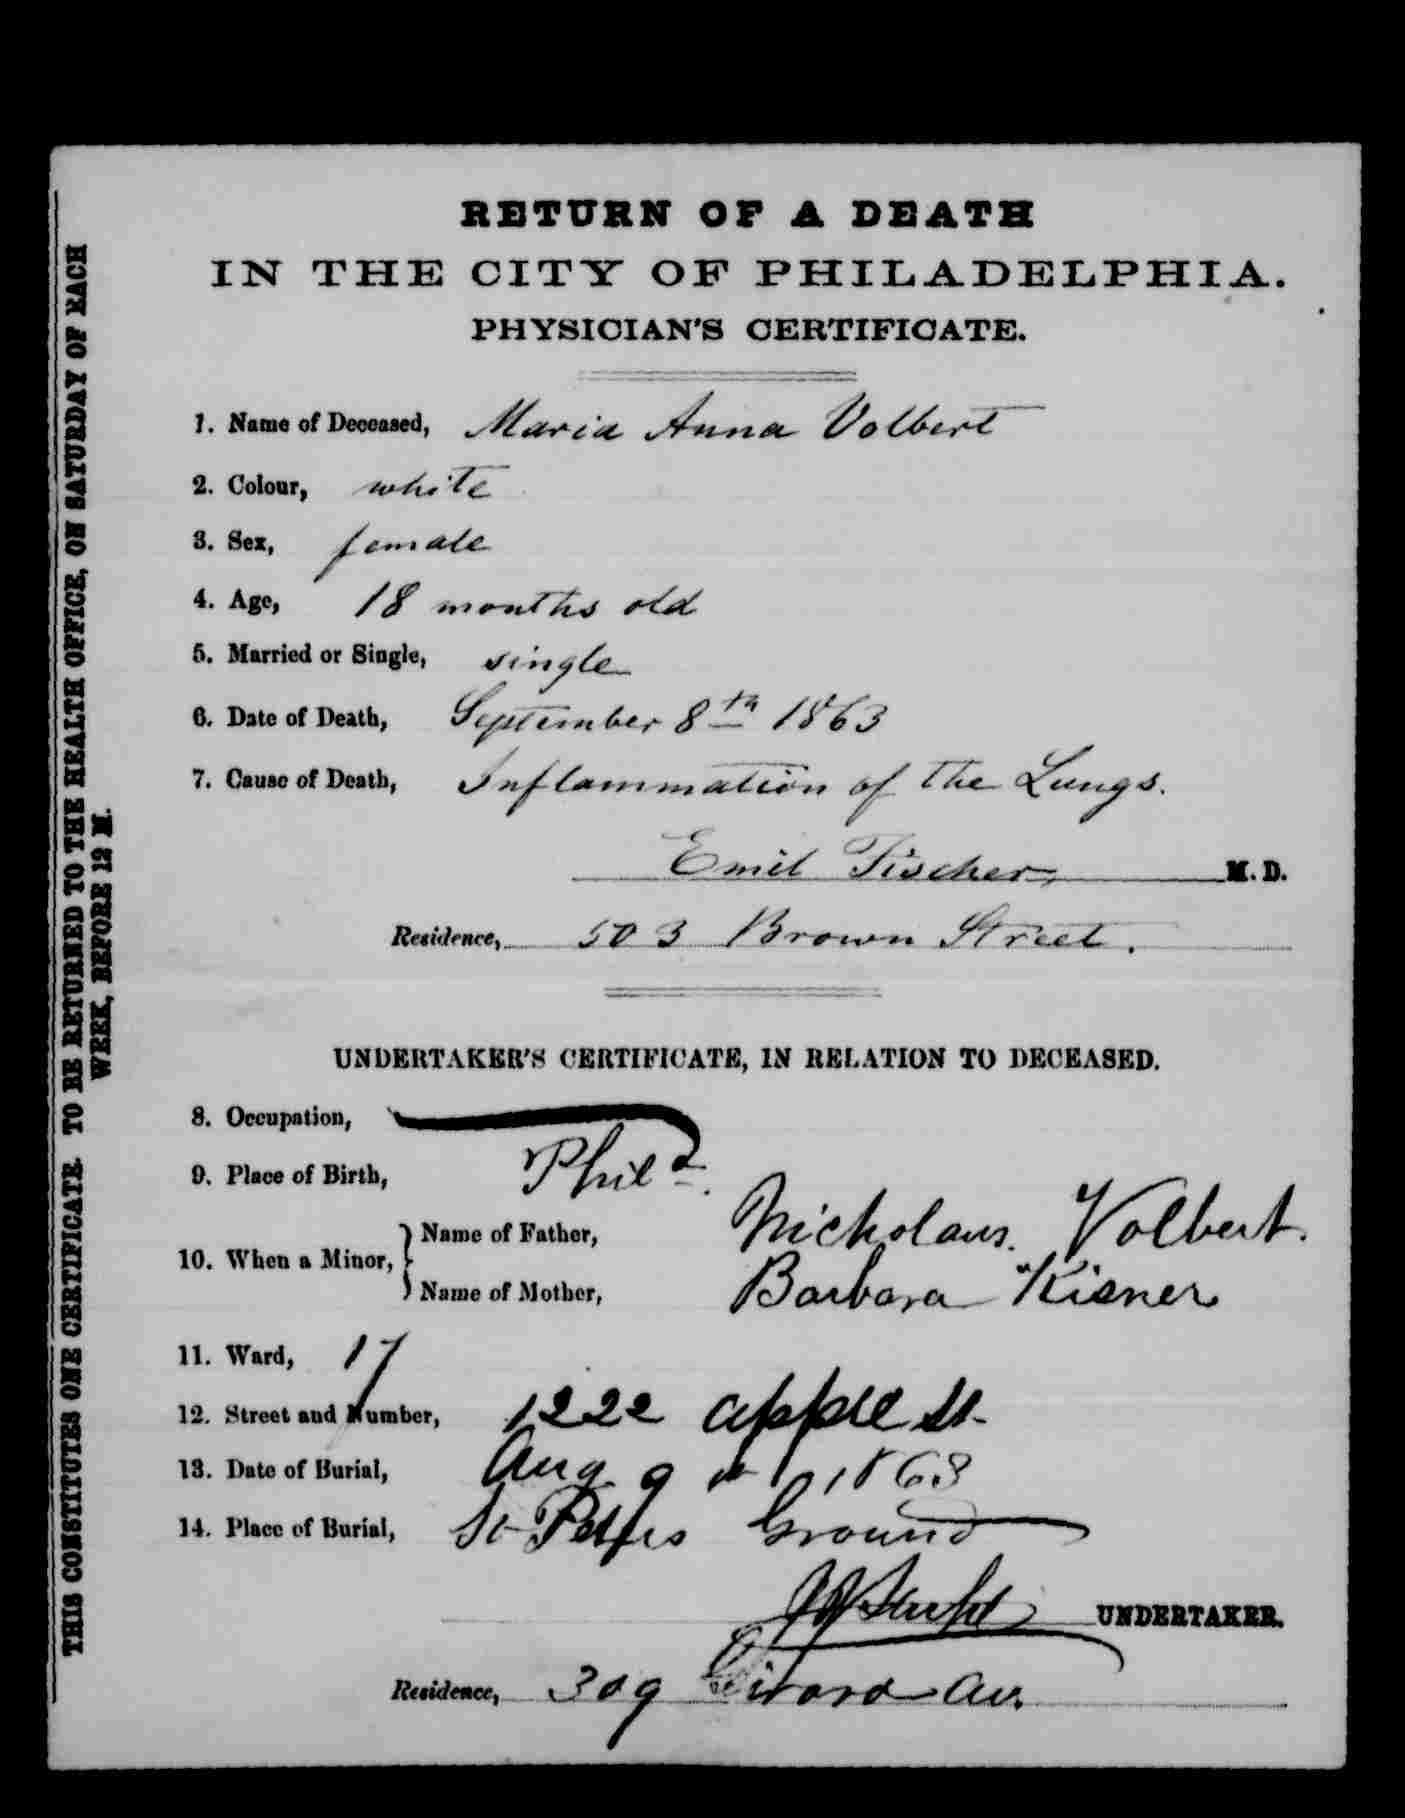 RETURN OF A DEATH
IN THE CITY OF PHILADELPHIA.
PHYSICIAN'S CERTIFICATE.
1. Name of Deceased, Maria Anna Volbert
2. Colour, white
3. Sex, female
4. Age, 18 months old
5. Married or Single, single
6. Date of Death, September 8th 1863
7. Cause of Death, Inflammation of the Lungs.
Emil Fischer, M. D.
Residence, 503 Brown Street.
UNDERTAKER'S CERTIFICATE, IN RELATION TO DECEASED.
8. Occupation,
9. Place of Birth, Phila.
10. When a Minor, Name of Father, Nicholaus. Volbert.
Name of Mother, Barbara Kisner
11. Ward, 17
12. Street and Number, 1222 apple St-
13. Date of Burial, Aug 9th 1863
14. Place of Burial, St Peters Ground
UNDERTAKER.
Residence, 309 Girard Av.
THIS CONSTITUTES ONE CERTIFICATE. TO BE RETURNED TO THE HEALTH OFFICE, ON SATURDAY OF EACH
WEEK, BEFORE 12 M.